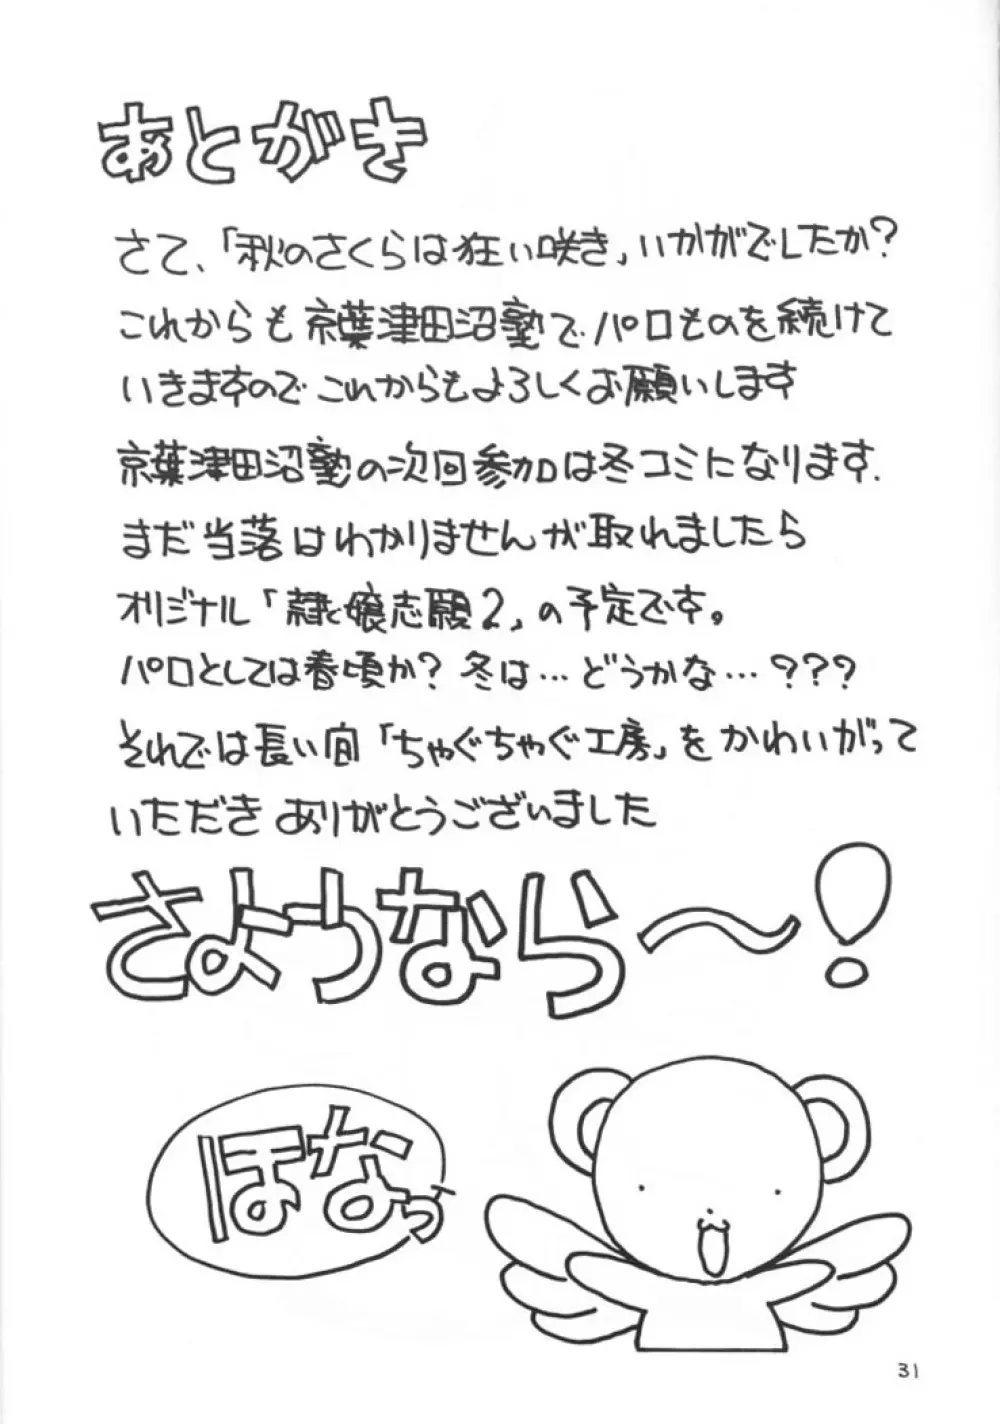 あとがき
さて、「秋のさくらは狂い咲き」いかがでしたか?
これからも京葉津田沼塾でパロものを続けて
いきますのでこれからもよろしくお願いします
京葉津田沼塾の次回参加は冬コミになります.
まだ当落はわかりませんが取れましたら
オリジナル「娘志願2」の予定です。
パロとしては春頃か?冬は…どうかな…???
それでは長い間「ちゃぐちゃぐ工房」をかわいがって
いただきありがとうございました
さようなら〜!
ほなっ
31